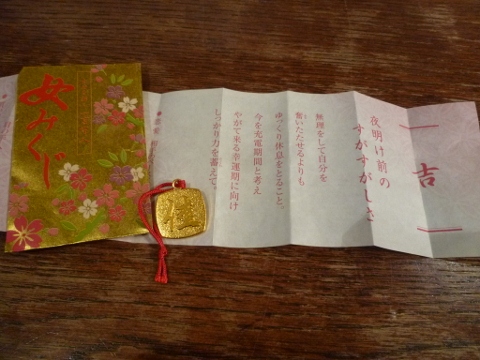 女みくじ
吉
夜明け前の
すがすがしさ
無理をして自分を
奮いたたせるよりも
ゆっくり休息をとること。
今を充電期間と考え
やがて来る幸運期に向け
しっかり力を蓄えて。